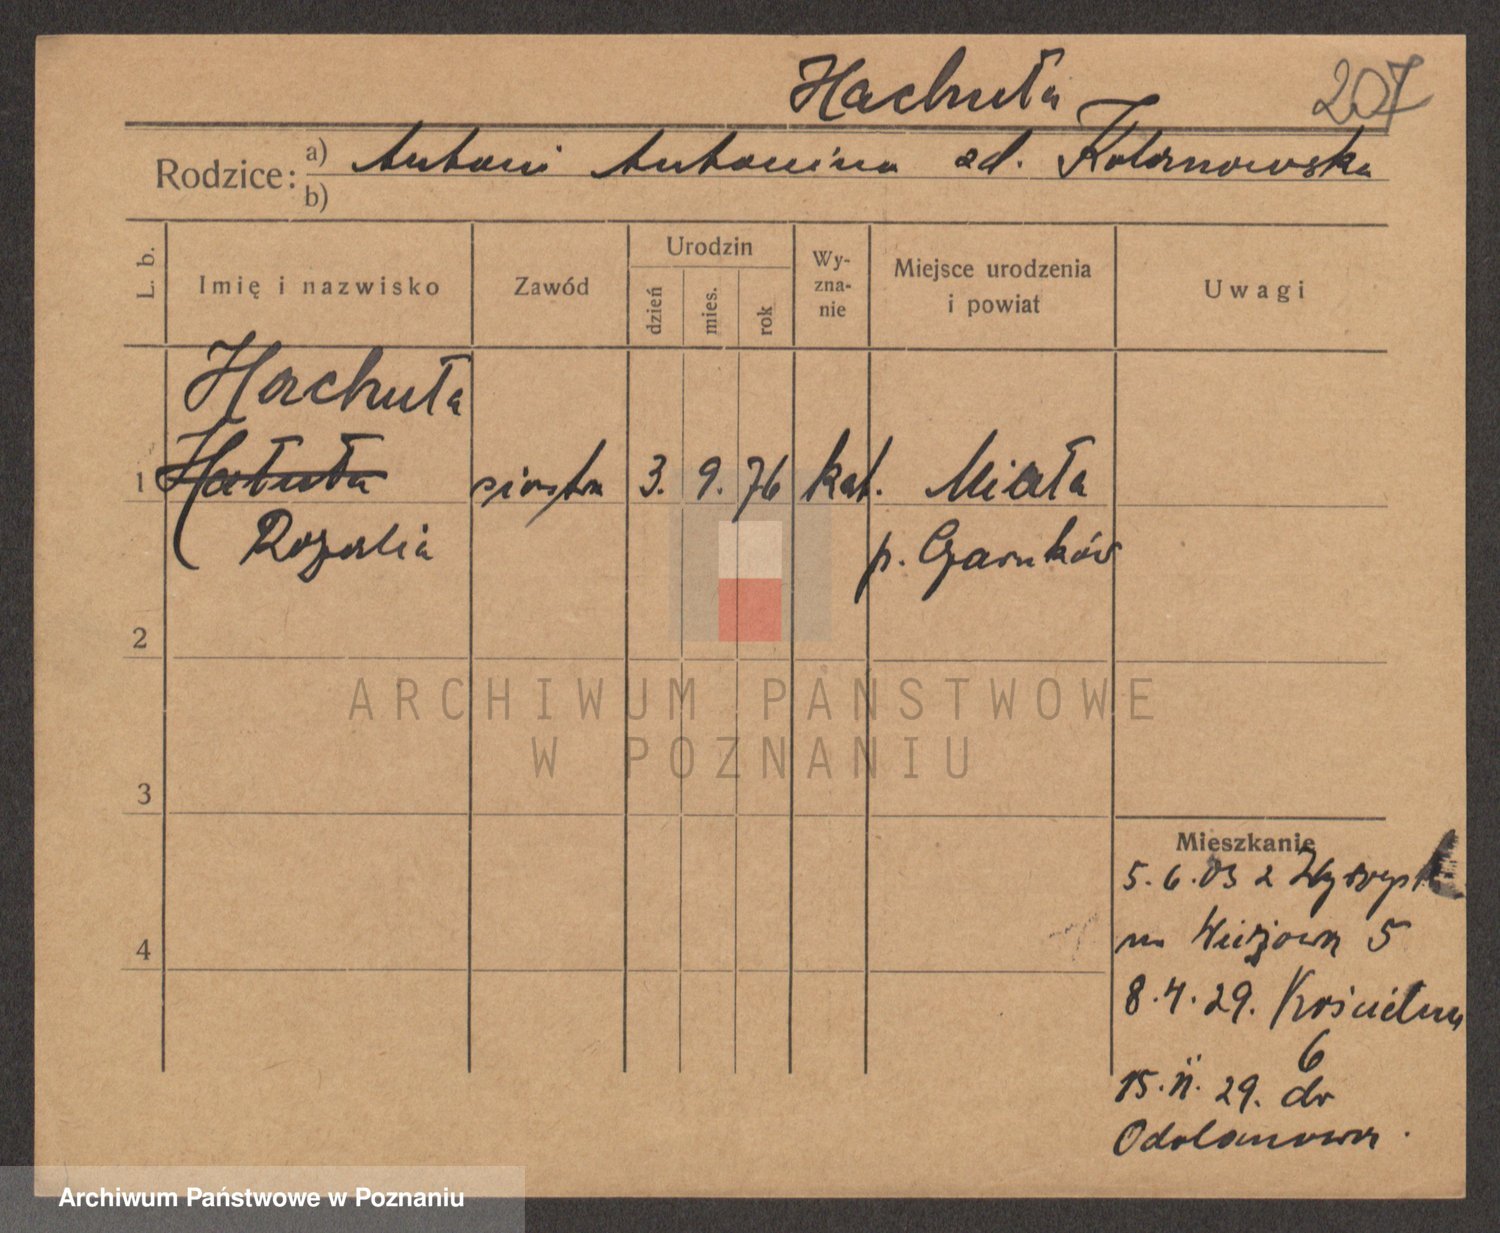 Hachuła 207
Rodzice: a) Antoni Antonina zd. Kolanowska
b)
L. b. Imię i nazwisko Zawód Urodzin dzień mies. rok Wy-zna-nie Miejsce urodzenia i powiat Uwagi
Hachuła
1 Hatuła siostra 3. 9. 76 kat. Miała
Rozalia p. Czarnków
2
3
4
Mieszkanie
5. 6. 03 z
na 5
8. 4. 29. Kościelna
6
15. II. 29. do
Odolanowa.
ARCHIWUM PAŃSTWOWE
W POZNANIU
Archiwum Państwowe w Poznaniu